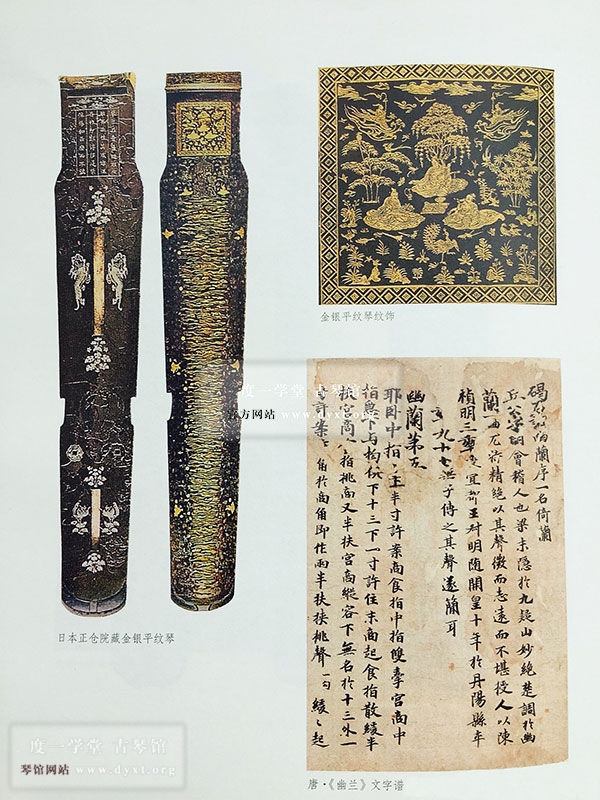 日本正仓院藏金银平纹琴
金银平纹琴纹饰
碣石調幽蘭序一名倚蘭
丘公字明會稽人也梁末隱於九疑山妙絕楚調於幽
蘭一曲尤特精絕以其聲微而志遠而不堪授人以陳
禎明三年授宜都王叔明隨開皇十年於丹陽縣卒
九十七無子傳之其聲遂簡耳
幽蘭第五
耶臥中指上半寸許案商食指中指雙牽宮商中
指急下与拘俱下十三下一寸許住末商起食指散緩半
扶宮商食指挑商又半扶宮商縱容下無名於十三外一
寸許案商角於商角即作兩半扶挾挑聲一句緩々起
唐·《幽兰》文字谱
度一学堂
官方网站 www.dyxt.org
度一学堂 古琴馆
琴馆网站 www.dyxt.org